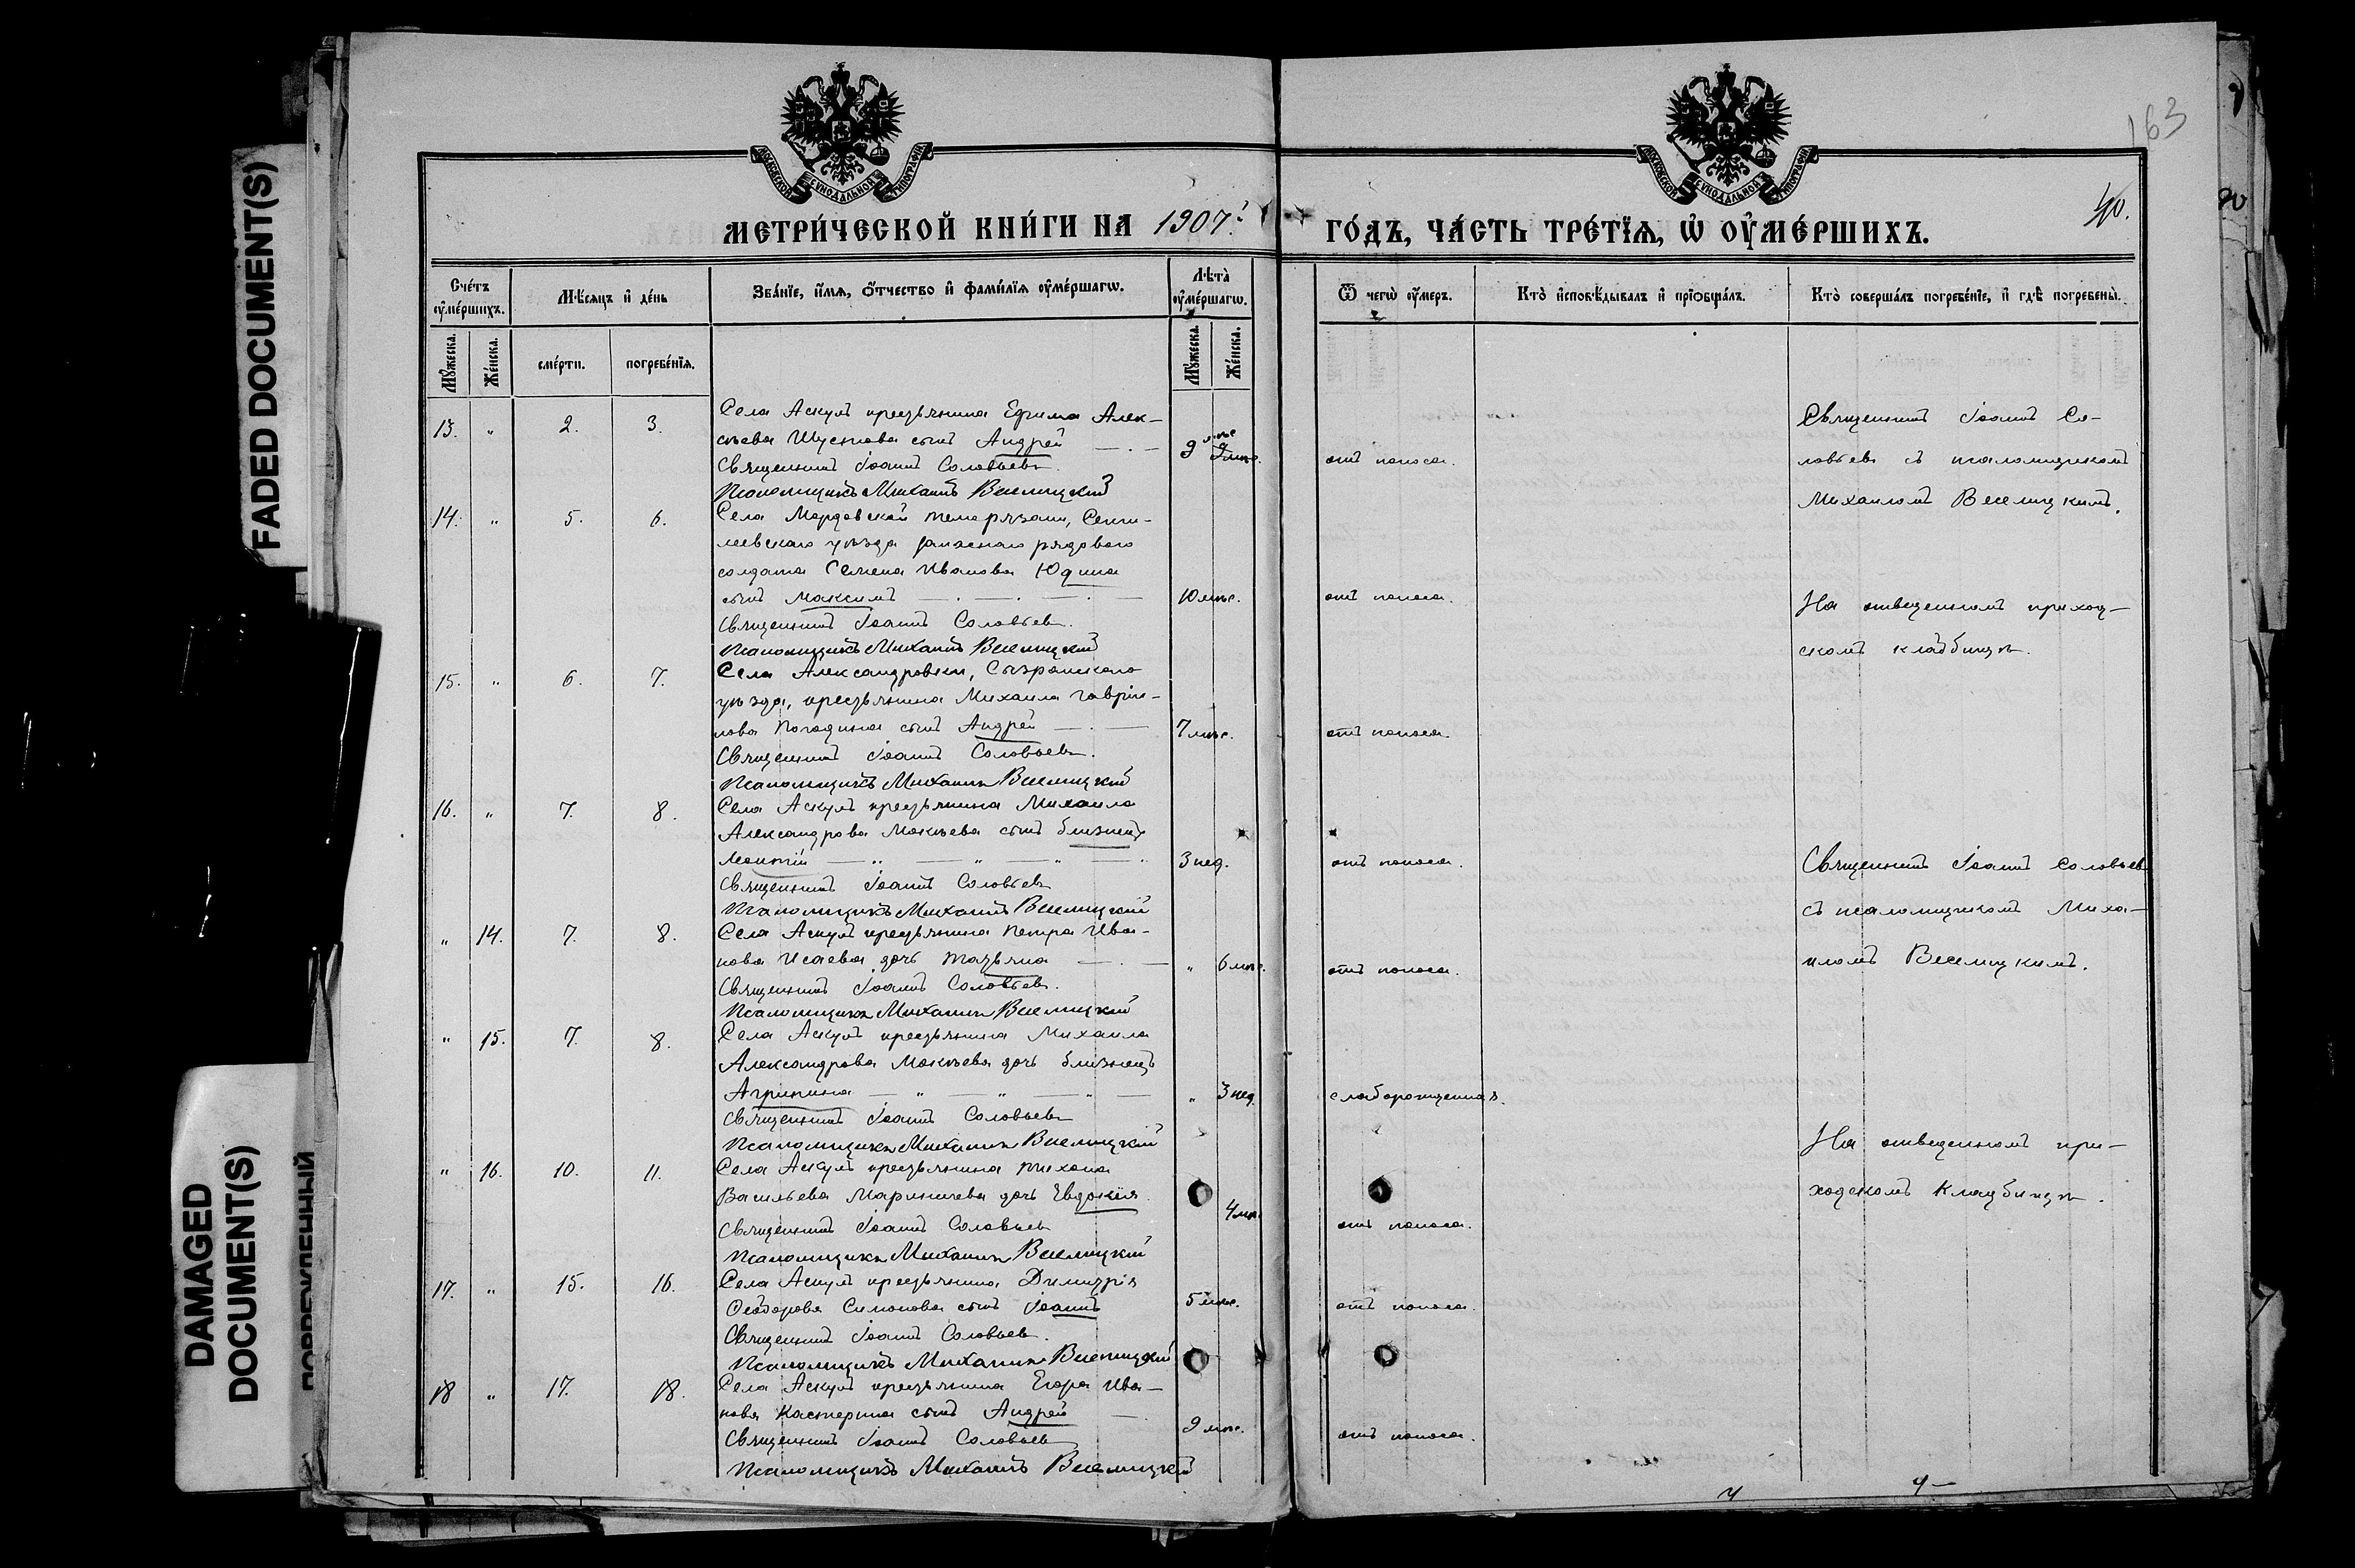 FADED DOCUMENT(S)
DAMAGED DOCUMENT(S)
163
40.
МОСКОВСКОЙ СѴНОДАЛЬНОЙ ТИПОГРАФІИ
МОСКОВСКОЙ СѴНОДАЛЬНОЙ ТИПОГРАФІИ
МЕТРИ́ЧЕСКОЙ КНИ́ГИ НА 1907 ГО́ДЪ, ЧА́СТЬ ТРЕ́ТЇѦ, Ѡ҆ ОУ҆МЕ́РШИХЪ.
Сче́тъ оу҆ме́ршихъ.
Мꙋ́жеска.
Же́нска.
Мѣ́сѧцъ и҆ де́нь
сме́рти.
погребе́нїѧ.
Зва́нїе, и҆́мѧ, ѻ҆́тчество и҆ фами́лїѧ оу҆ме́ршагѡ.
Лѣ́та оу҆ме́ршагѡ.
Мꙋ́жеска.
Же́нска.
Ѿ чегѡ̀ оу҆́меръ.
Кто̀ и҆сповѣ́дывалъ и҆ прїѡбща́лъ.
Кто̀ соверша́лъ погребе́нїе, и҆ гдѣ̀ погребены̀.
13. " 2. 3. Села Аскулъ крестьянина Ефима Алек-
сѣева Шустова сынъ Андрей 9 мѣс. отъ поноса.
Священникъ Іоаннъ Соловьевъ.
Псаломщикъ Михаилъ Веселицкій
Священникъ Іоаннъ Со-
ловьевъ съ псаломщикомъ
Михаиломъ Веселицкимъ.
14. " 5. 6. Села Мордовской Темрязани, Сенги-
леевскаго уѣзда запаснаго рядового
солдата Семена Иванова Юдина
сынъ Максимъ 10 мѣс. отъ поноса.
Священникъ Іоаннъ Соловьевъ.
Псаломщикъ Михаилъ Веселицкій
На отведенномъ приход-
скомъ кладбищѣ.
15. " 6. 7. Села Александровки, Сызранскаго
уѣзда, крестьянина Михаила Гаврiи-
лова Погодина сынъ Андрей 7 мѣс. отъ поноса.
Священникъ Іоаннъ Соловьевъ.
Псаломщикъ Михаилъ Веселицкій
16. " 7. 8. Села Аскулъ крестьянина Михаила
Александрова Мокѣева сынъ близнецъ
Леонтій 3 нед. отъ поноса.
Священникъ Іоаннъ Соловьевъ
Псаломщикъ Михаилъ Веселицкій
Священникъ Іоаннъ Соловьевъ
съ псаломщикомъ Миха-
иломъ Веселицкимъ.
" 14. 7. 8. Села Аскулъ крестьянина Петра Ива-
нова Исаева дочь Татьяна " 6 мѣс. отъ поноса.
Священникъ Іоаннъ Соловьевъ.
Псаломщикъ Михаилъ Веселицкій
" 15. 7. 8. Села Аскулъ крестьянина Михаила
Александрова Мокѣева дочь близнецъ
Агрипина " 3 нед. слаборожденная.
Священникъ Іоаннъ Соловьевъ
Псаломщикъ Михаилъ Веселицкій
На отведенномъ при-
ходскомъ кладбищѣ.
" 16. 10. 11. Села Аскулъ крестьянина Тихона
Васильева Мариничева дочь Евдокія 4 мѣс.
Священникъ Іоаннъ Соловьевъ отъ поноса.
Псаломщикъ Михаилъ Веселицкій
17. " 15. 16. Села Аскулъ крестьянина Димитрія
Ѳеодорова Симонова сынъ Іоаннъ 5 мѣс. отъ поноса.
Священникъ Іоаннъ Соловьевъ.
Псаломщикъ Михаилъ Веселицкій
18 " 17. 18. Села Аскулъ крестьянина Егора Ива-
нова Кастерина сынъ Андрей 9 мѣс. отъ поноса.
Священникъ Іоаннъ Соловьевъ
Псаломщикъ Михаилъ Веселицкій